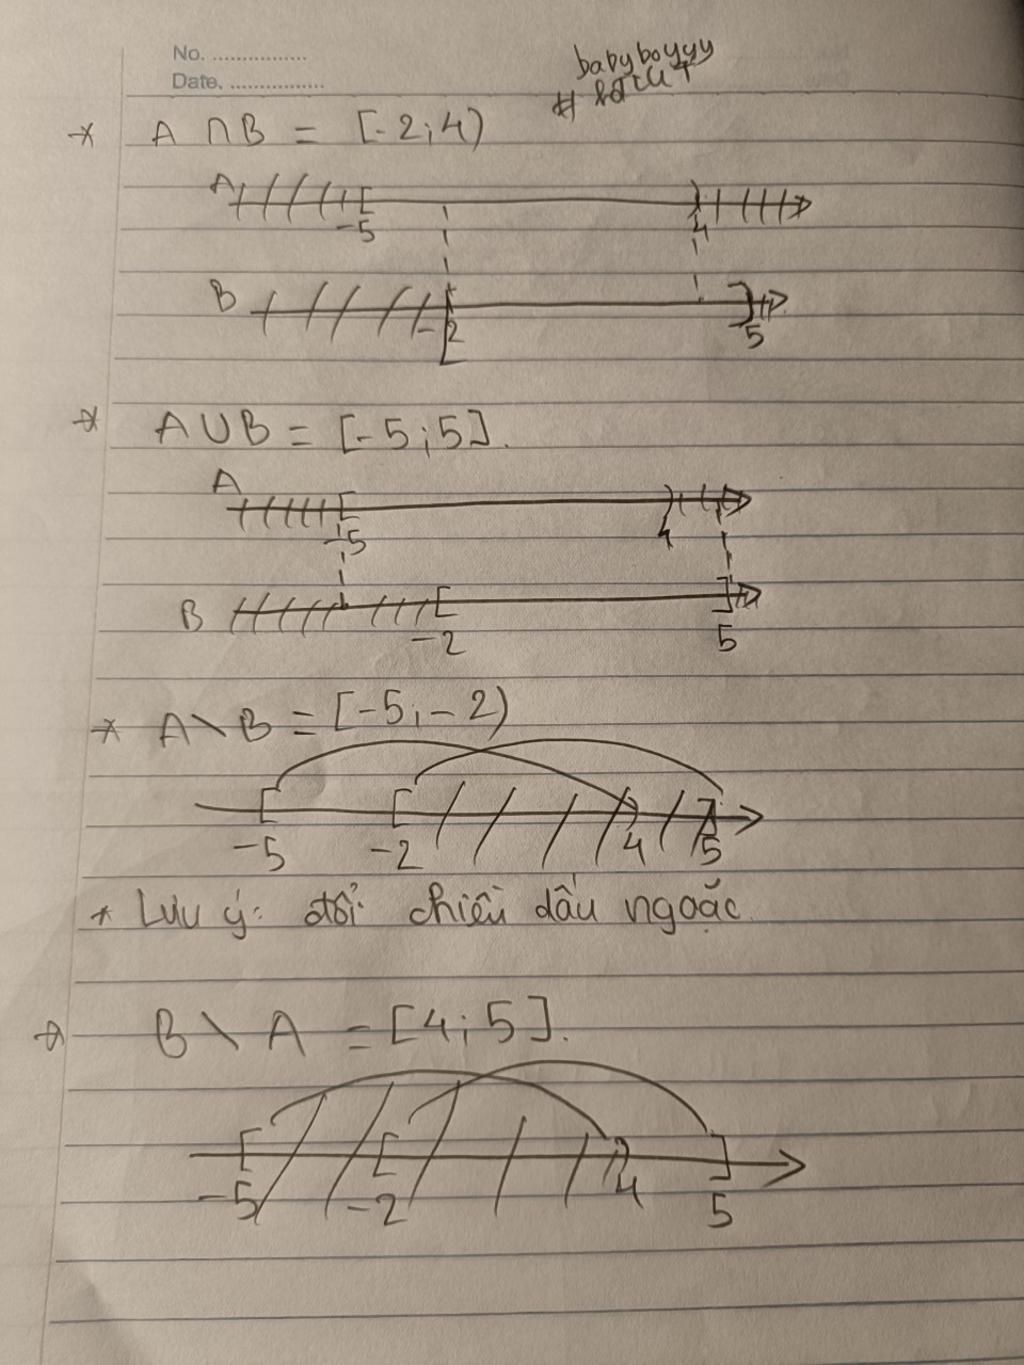 No. ................
Date. ................
babyboyyy
* A ∩ B = [-2; 4)
A
-5 4
B
-2 5
* A ∪ B = [-5; 5].
A
-5 4
B
-2 5
* A \ B = [-5; -2)
-5 -2 4 5
* Lưu ý: đổi chiều dấu ngoặc.
* B \ A = [4; 5].
-5 -2 4 5